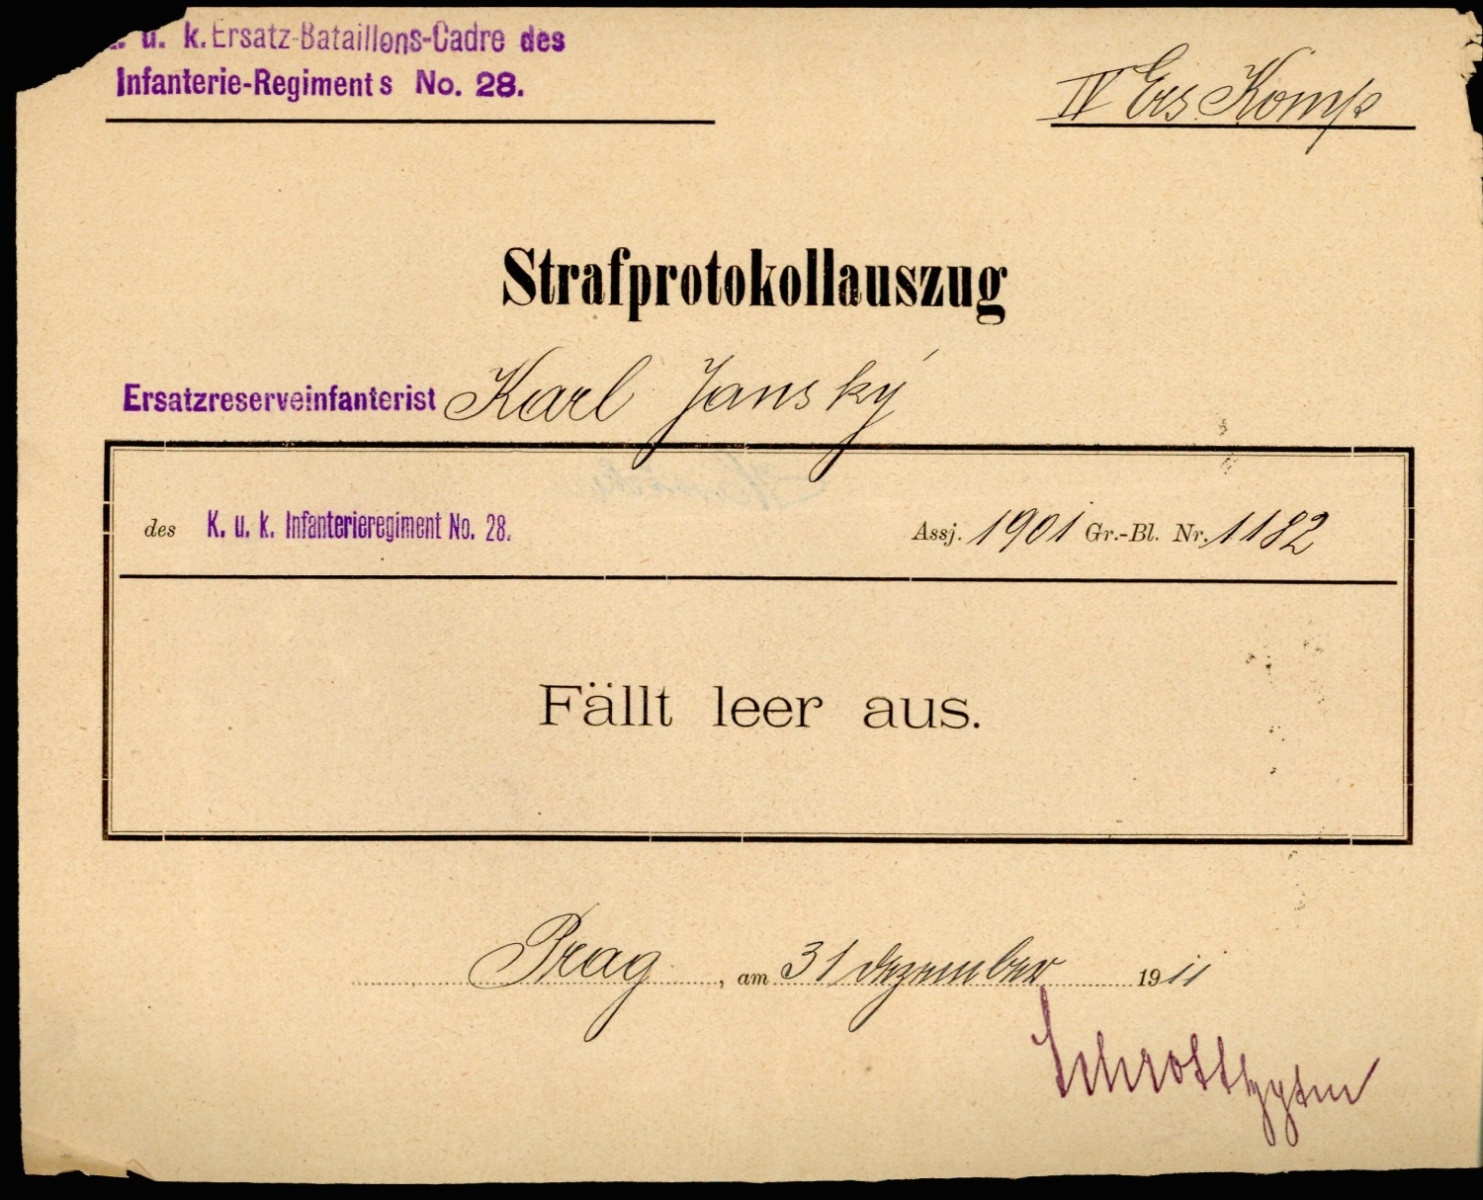 u. k. Ersatz-Bataillons-Cadre des
Infanterie-Regiments No. 28.
IV Ers Komp
Strafprotokollauszug
Ersatzreserveinfanterist Karl Janský
des K. u. k. Infanterieregiment No. 28. Assj. 1901 Gr.-Bl. Nr. 1182
Fällt leer aus.
Prag, am 31 dezember 1911